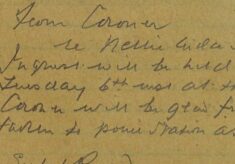 From Coroner
re Nellie
Inquest will be held
Tuesday 6th inst at
Coroner will be glad
taken to police station